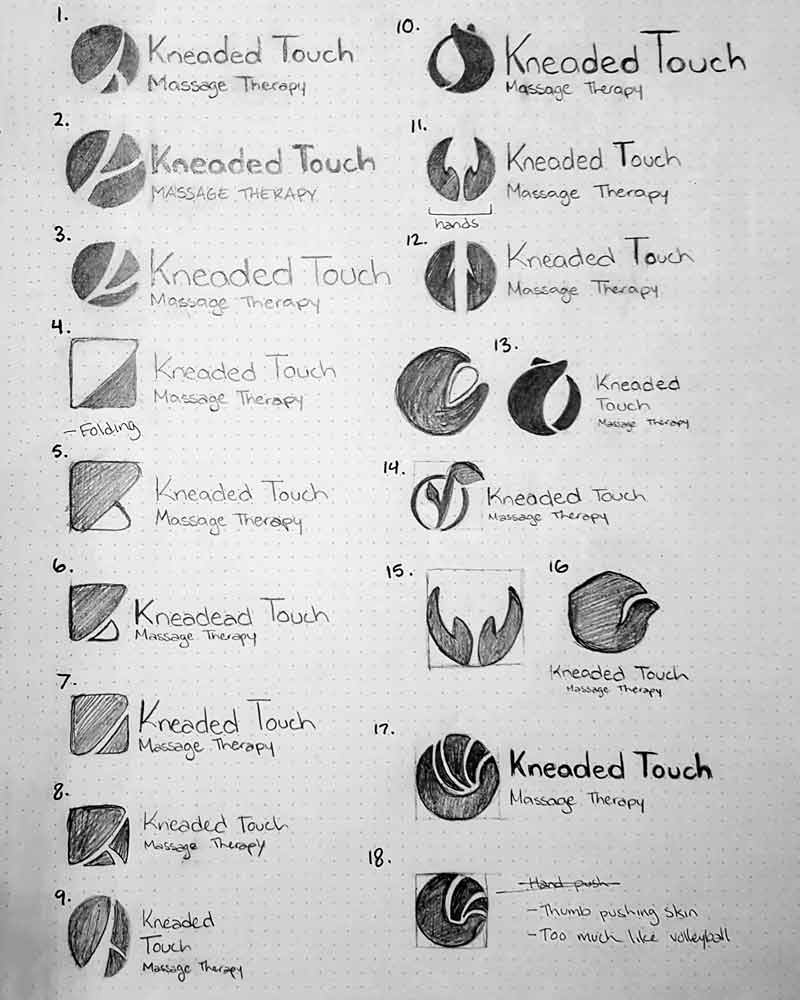 1.
Kneaded Touch
Massage Therapy
2.
Kneaded Touch
MASSAGE THERAPY
3.
Kneaded Touch
Massage Therapy
4.
Kneaded Touch
Massage Therapy
- Folding
5.
Kneaded Touch
Massage Therapy
6.
Kneadead Touch
Massage Therapy
7.
Kneaded Touch
Massage Therapy
8.
Kneaded Touch
Massage Therapy
9.
Kneaded
Touch
Massage Therapy
10.
Kneaded Touch
Massage Therapy
11.
Kneaded Touch
Massage Therapy
hands
12.
Kneaded Touch
Massage Therapy
13.
Kneaded
Touch
Massage Therapy
14.
Kneaded Touch
Massage Therapy
15.
16
Kneaded Touch
Massage Therapy
17.
Kneaded Touch
Massage Therapy
18.
- Hand push
- Thumb pushing skin
- Too much like volleyball